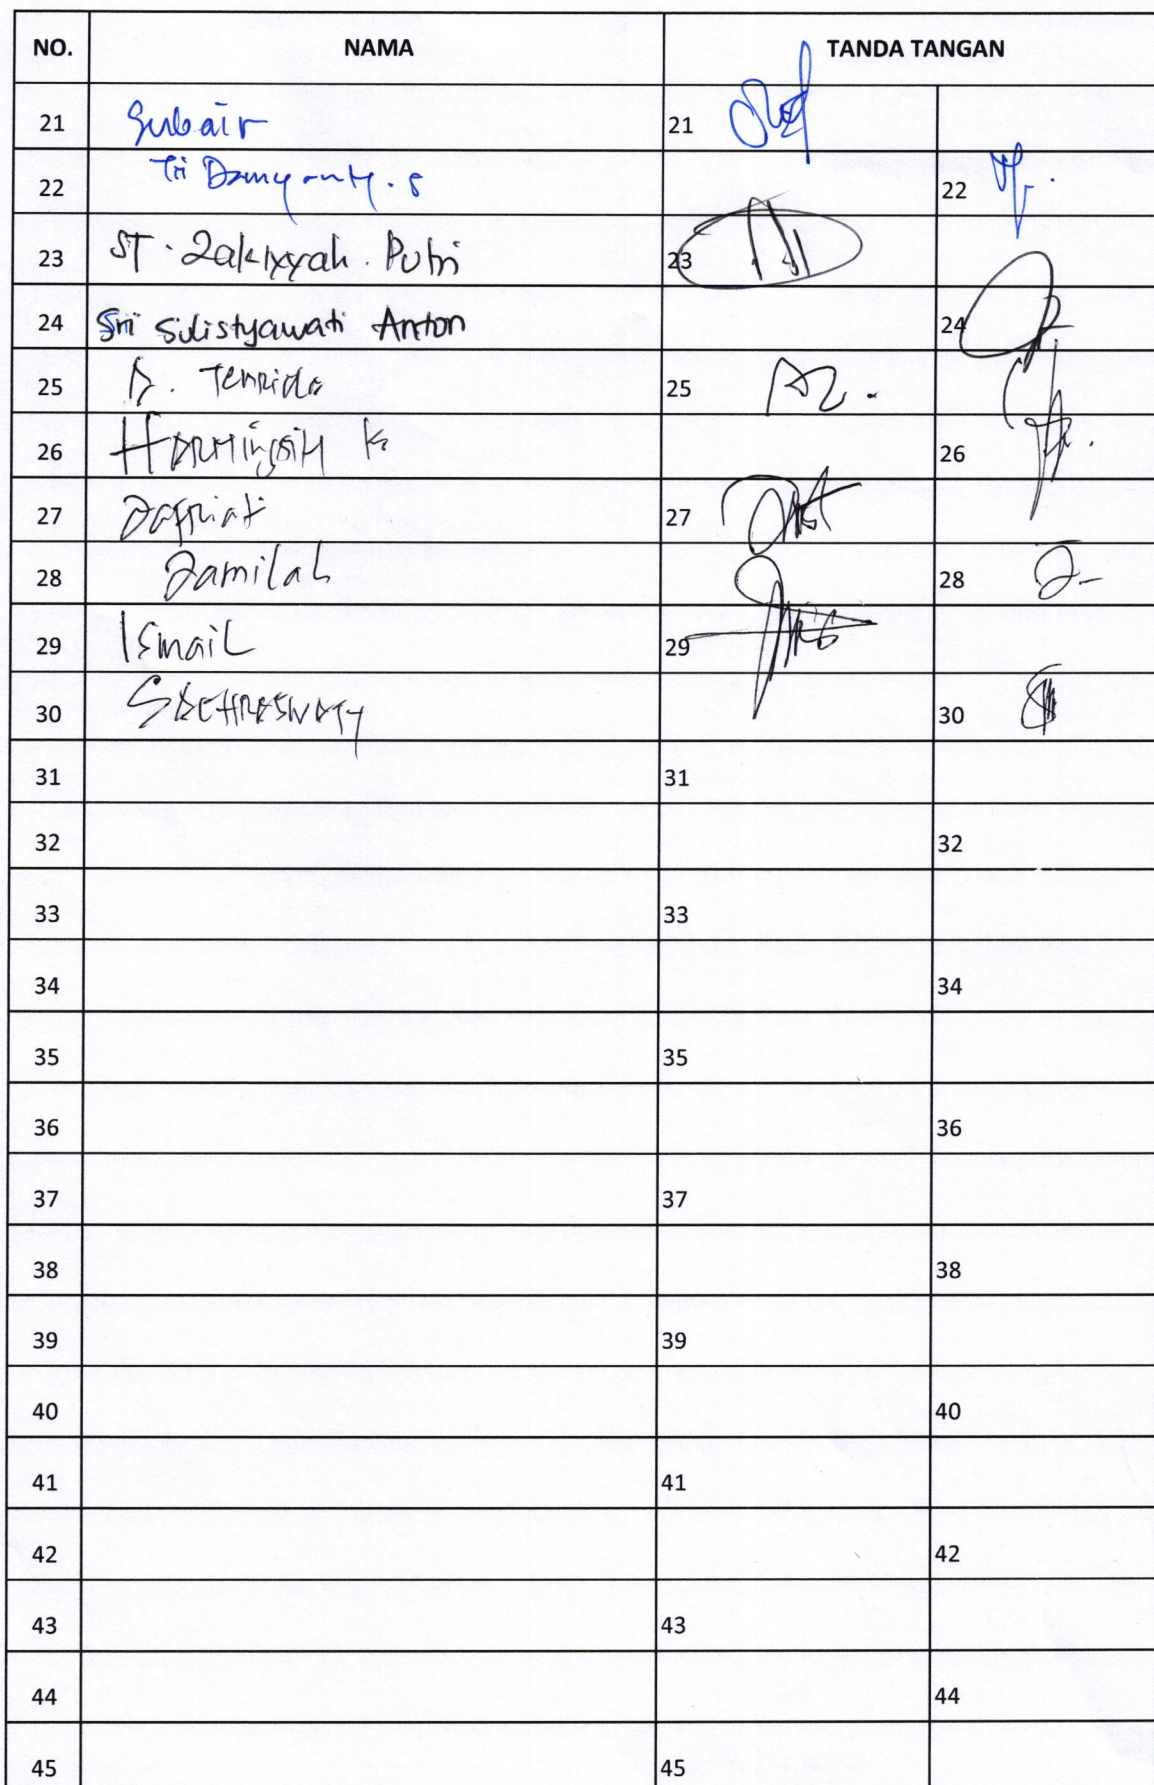 NO. NAMA TANDA TANGAN
21 Subair 21
22 Tri Damyanty. S 22
23 ST. Zakiyyah. Putri 23
24 Sri Sulistyawati Anton 24
25 A. Tenrida 25
26 HARMingsiH K 26
27 27
28 Jamilah 28
29 Ismail 29
30 30
31 31
32 32
33 33
34 34
35 35
36 36
37 37
38 38
39 39
40 40
41 41
42 42
43 43
44 44
45 45